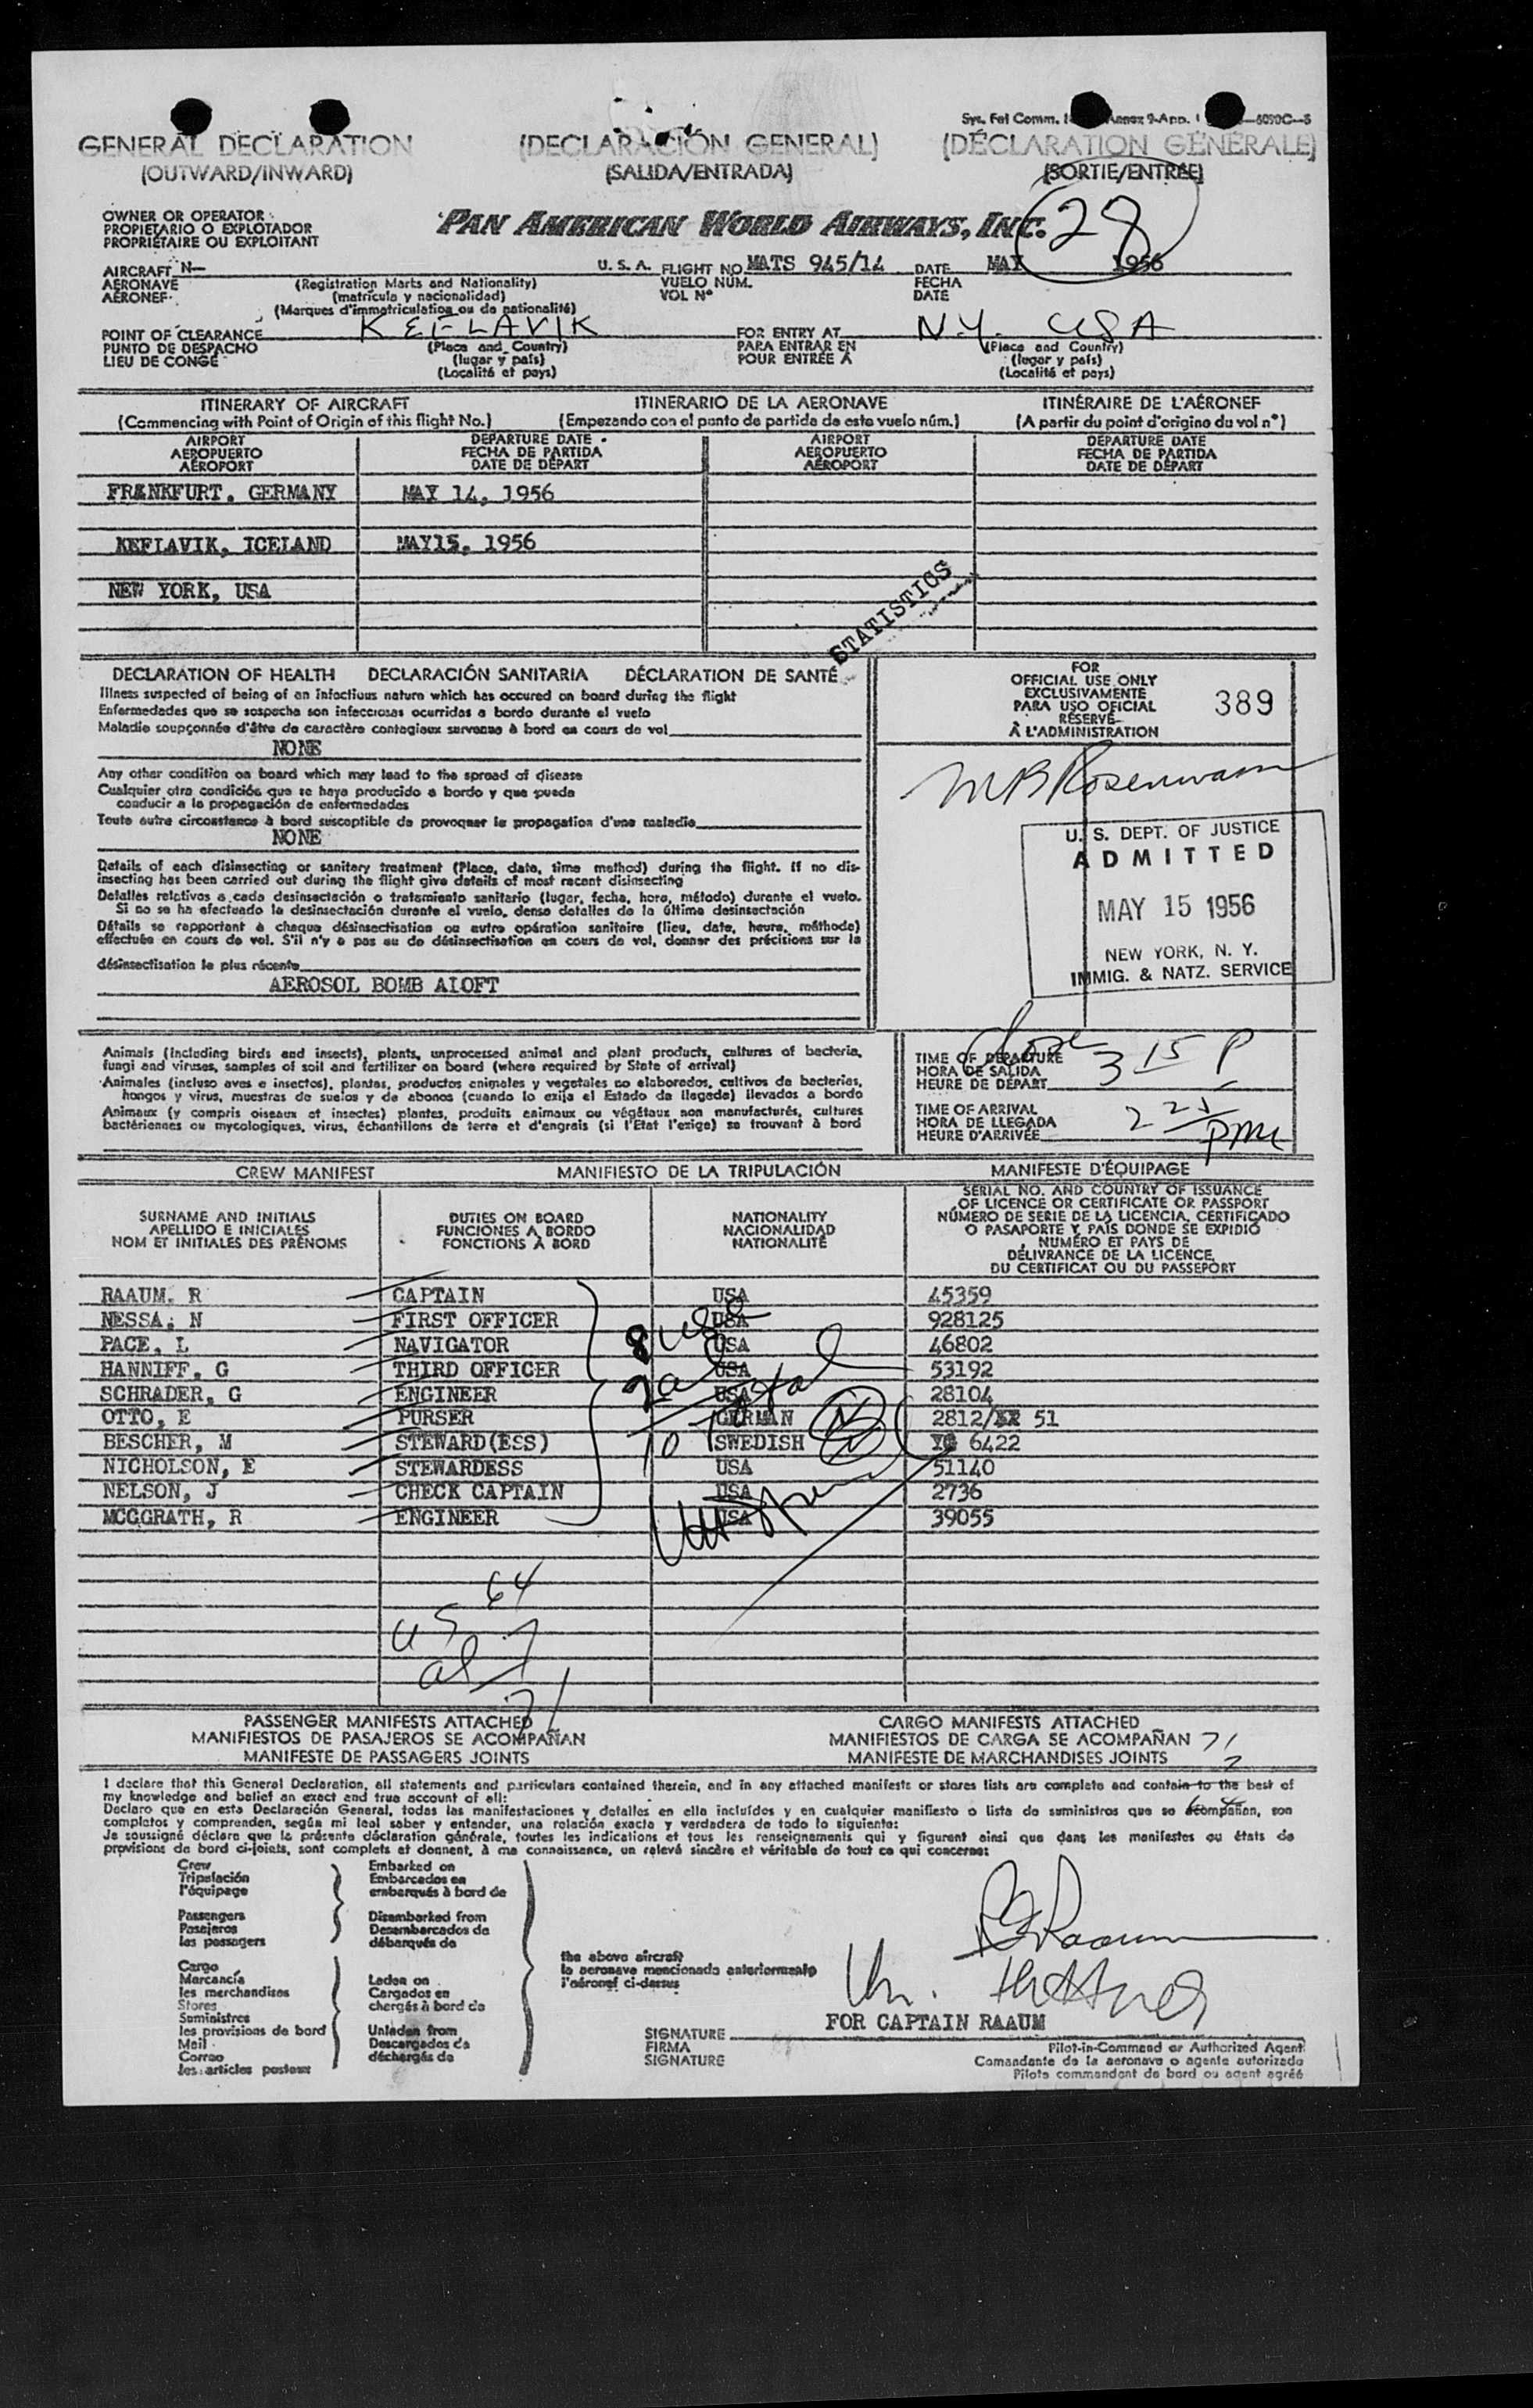 Sys. Fel Comm. Annex 9-App. 1 —6090C—5
GENERAL DECLARATION (DECLARACIÓN GENERAL) (DÉCLARATION GÉNÉRALE)
(OUTWARD/INWARD) (SALIDA/ENTRADA) (SORTIE/ENTRÉE)
28
OWNER OR OPERATOR
PROPIETARIO O EXPLOTADOR
PROPRIÉTAIRE OU EXPLOITANT
PAN AMERICAN WORLD AIRWAYS, INC.
AIRCRAFT N— U. S. A. FLIGHT NO. MATS 945/14 DATE MAY 1956
AERONAVE (Registration Marks and Nationality) VUELO NÚM. FECHA
AÉRONEF (matrícula y nacionalidad) VOL Nº DATE
(Marques d'immatriculation ou de nationalité)
POINT OF CLEARANCE KEFLAVIK FOR ENTRY AT N.Y. USA
PUNTO DE DESPACHO (Place and Country) PARA ENTRAR EN (Place and Country)
LIEU DE CONGÉ (lugar y país) POUR ENTRÉE À (lugar y país)
(Localité et pays) (Localité et pays)
ITINERARY OF AIRCRAFT ITINERARIO DE LA AERONAVE ITINÉRAIRE DE L'AÉRONEF
(Commencing with Point of Origin of this flight No.) (Empezando con el punto de partida de este vuelo núm.) (A partir du point d'origine du vol nº)
AIRPORT DEPARTURE DATE AIRPORT DEPARTURE DATE
AEROPUERTO FECHA DE PARTIDA AEROPUERTO FECHA DE PARTIDA
AÉROPORT DATE DE DÉPART AÉROPORT DATE DE DÉPART
FRANKFURT, GERMANY MAY 14, 1956
KEFLAVIK, ICELAND MAY15, 1956
NEW YORK, USA
STATISTICS
DECLARATION OF HEALTH DECLARACIÓN SANITARIA DÉCLARATION DE SANTÉ
Illness suspected of being of an infectious nature which has occured on board during the flight
Enfermedades que se sospecha son infecciosas ocurridas a bordo durante el vuelo
Maladie soupçonnée d'être de caractère contagieux survenue à bord en cours de vol
NONE
Any other condition on board which may lead to the spread of disease
Cualquier otra condición que se haya producido a bordo y que pueda
conducir a la propagación de enfermedades
Toute autre circonstance à bord susceptible de provoquer le propagation d'une maladie
NONE
Details of each disinsecting or sanitary treatment (Place, date, time method) during the flight. If no dis-
insecting has been carried out during the flight give details of most recent disinsecting
Detalles relativos a cada desinsectación o tratamiento sanitario (lugar, fecha, hora, método) durante el vuelo.
Si no se ha efectuado la desinsectación durante el vuelo, dense detalles de la última desinsectación
Détails se rapportant à chaque désinsectisation ou autre opération sanitaire (lieu, date, heure, méthode)
effectuée en cours de vol. S'il n'y a pas eu de désinsectisation en cours de vol, donner des précisions sur la
désinsectisation le plus récente
AEROSOL BOMB ALOFT
FOR
OFFICIAL USE ONLY
EXCLUSIVAMENTE
PARA USO OFICIAL
RÉSERVÉ
À L'ADMINISTRATION
389
U. S. DEPT. OF JUSTICE
ADMITTED
MAY 15 1956
NEW YORK, N. Y.
IMMIG. & NATZ. SERVICE
Animals (including birds and insects), plants, unprocessed animal and plant products, cultures of bacteria,
fungi and viruses, samples of soil and fertilizer on board (where required by State of arrival)
Animales (incluso aves e insectos), plantas, productos animales y vegetales no elaborados, cultivos de bacterias,
hongos y virus, muestras de suelos y de abonos (cuando lo exija el Estado de llegada) llevados a bordo
Animaux (y compris oiseaux et insectes) plantes, produits animaux ou végétaux non manufacturés, cultures
bactériennes ou mycologiques, virus, échantillons de terre et d'engrais (si l'Etat l'exige) se trouvant à bord
TIME OF DEPARTURE
HORA DE SALIDA
HEURE DE DÉPART 3 15 P
TIME OF ARRIVAL
HORA DE LLEGADA
HEURE D'ARRIVÉE
CREW MANIFEST MANIFIESTO DE LA TRIPULACIÓN MANIFESTE D'ÉQUIPAGE
SURNAME AND INITIALS
APELLIDO E INICIALES
NOM ET INITIALES DES PRÉNOMS
DUTIES ON BOARD
FUNCIONES A BORDO
FONCTIONS À BORD
NATIONALITY
NACIONALIDAD
NATIONALITÉ
SERIAL NO. AND COUNTRY OF ISSUANCE
OF LICENCE OR CERTIFICATE OR PASSPORT
NÚMERO DE SERIE DE LA LICENCIA, CERTIFICADO
O PASAPORTE Y PAÍS DONDE SE EXPIDIÓ
NUMÉRO ET PAYS DE
DÉLIVRANCE DE LA LICENCE,
DU CERTIFICAT OU DU PASSEPORT
RAAUM, R CAPTAIN USA 45359
NESSA, N FIRST OFFICER USA 928125
PACE, L NAVIGATOR USA 46802
HANNIFF, G THIRD OFFICER USA 53192
SCHRADER, G ENGINEER USA 28104
OTTO, E PURSER GERMAN 2812/ 51
BESCHER, M STEWARD(ESS) SWEDISH 6422
NICHOLSON, E STEWARDESS USA 51140
NELSON, J CHECK CAPTAIN USA 2736
MCGGRATH, R ENGINEER USA 39055
8 USC
2 al
10 Total
US 64
al 7
71
PASSENGER MANIFESTS ATTACHED CARGO MANIFESTS ATTACHED
MANIFIESTOS DE PASAJEROS SE ACOMPAÑAN MANIFIESTOS DE CARGA SE ACOMPAÑAN 71
MANIFESTE DE PASSAGERS JOINTS MANIFESTE DE MARCHANDISES JOINTS
I declare that this General Declaration, all statements and particulars contained therein, and in any attached manifests or stores lists are complete and contain to the best of
my knowledge and belief an exact and true account of all:
Declaro que en esta Declaración General, todas las manifestaciones y detalles en ella incluídos y en cualquier manifiesto o lista de suministros que se acompañan, son
completos y comprenden, según mi leal saber y entender, una relación exacta y verdadera de todo lo siguiente:
Je soussigné déclare que la présente déclaration générale, toutes les indications et tous les renseignements qui y figurent ainsi que dans les manifestes ou états de
provisions de bord ci-joints, sont complets et donnent, à ma connaissance, un relevé sincère et véritable de tout ce qui concerne:
Crew
Tripulación
l'équipage
Passengers
Pasajeros
les passagers
Cargo
Mercancía
les merchandises
Stores
Suministros
les provisions de bord
Mail
Correo
les articles postaux
Embarked on
Embarcados en
embarqués à bord de
Disembarked from
Desembarcados de
débarqués de
Laden on
Cargados en
chargés à bord de
Unladen from
Descargados de
déchargés de
the above aircraft
la aeronave mencionada anteriormente
l'aéronef ci-dessus
FOR CAPTAIN RAAUM
SIGNATURE
FIRMA
SIGNATURE
Pilot-in-Command or Authorized Agent
Comandante de la aeronave o agente autorizado
Pilote commandant de bord ou agent agréé